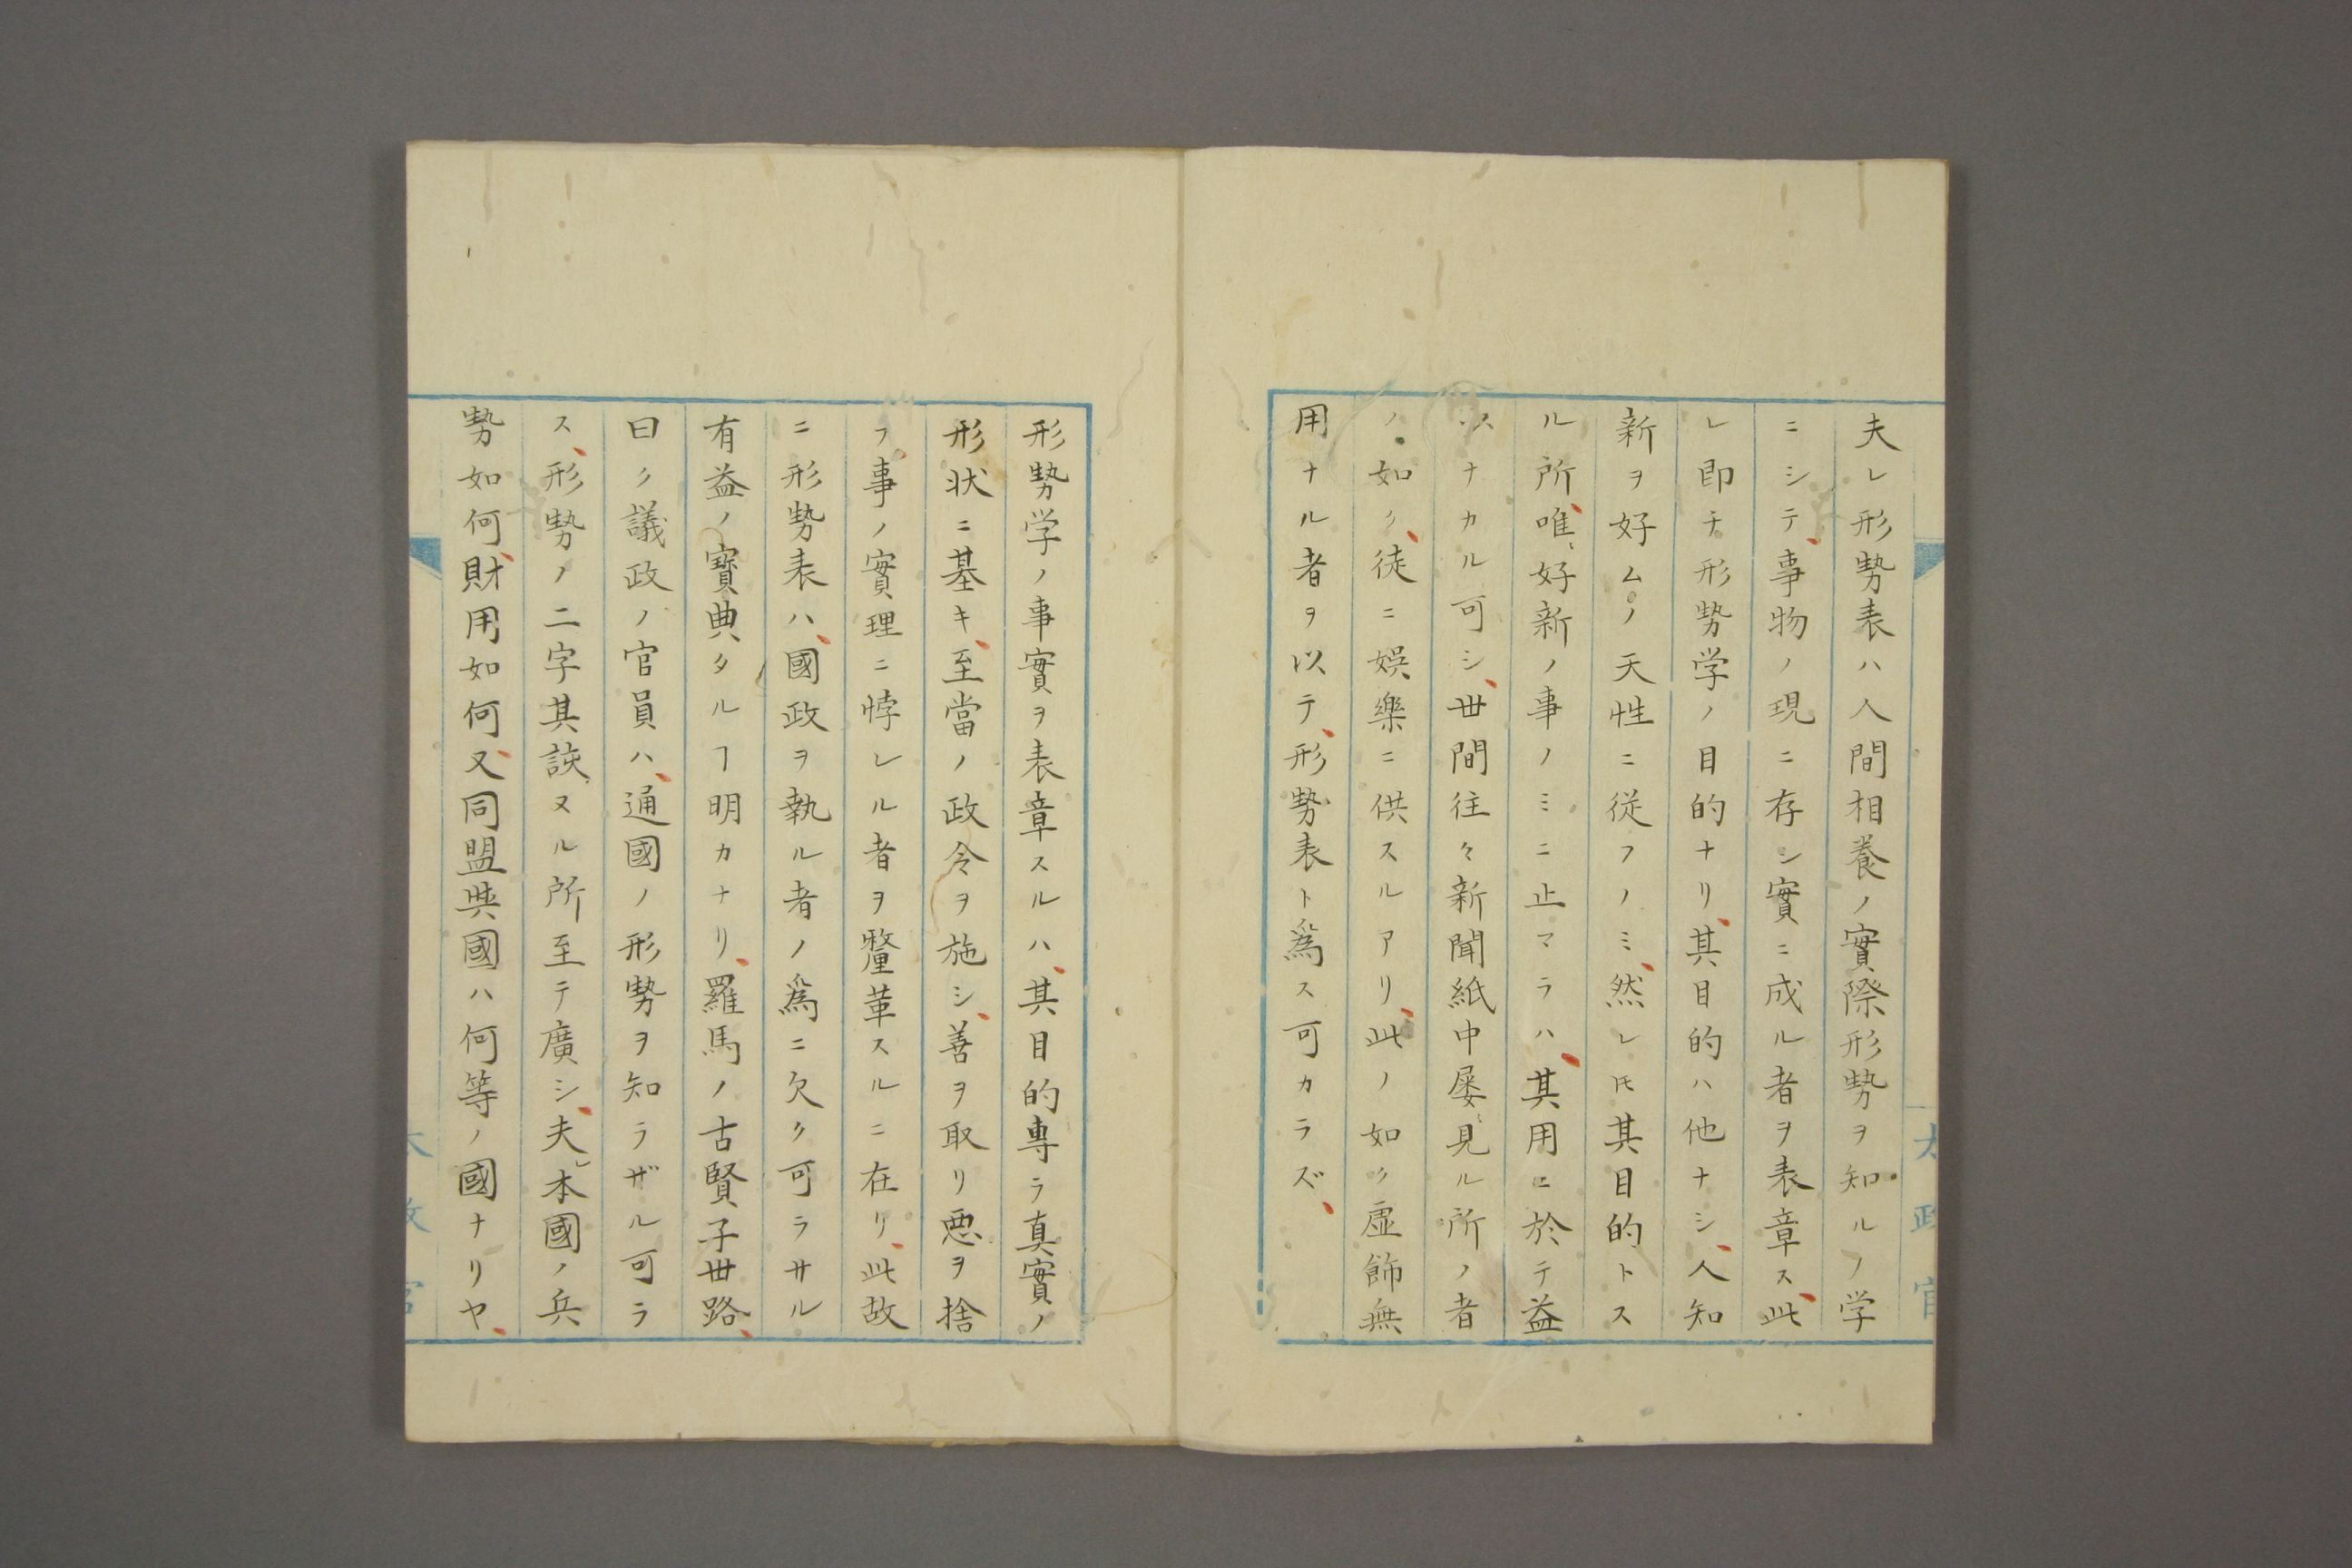 夫レ形勢表ハ人間相養ノ實際形勢ヲ知ルノ学
ニシテ、事物ノ現ニ存シ實ニ成ル者ヲ表章ス、此
レ即チ形勢学ノ目的ナリ、其目的ハ他ナシ、人知
新ヲ好ムノ天性ニ従フノミ、然レ𪜈其目的トス
ル所、唯、好新ノ事ノミニ止マラハ、其用ニ於テ益
ナカル可シ、世間往々新聞紙中屡〻見ル所ノ者
ノ如ク、徒ニ娯樂ニ供スルアリ、此ノ如ク虚飾無
用ナル者ヲ以テ、形勢表ト爲ス可カラズ、
形勢学ノ事實ヲ表章スルハ、其目的專ラ真實ノ
形状ニ基キ、至當ノ政令ヲ施シ、善ヲ取リ悪ヲ捨
ラ、事ノ實理ニ悖レル者ヲ釐革スルニ在リ、此故
ニ形勢表ハ、國政ヲ執ル者ノ爲ニ欠ク可ラサル
有益ノ寳典タルヿ明カナリ、羅馬ノ古賢子世路、
曰ク議政ノ官員ハ、通國ノ形勢ヲ知ラザル可ラ
ス、形勢ノ二字其該ヌル所至テ廣シ、夫レ本國ノ兵
勢如何、財用如何、又同盟與國ハ何等ノ國ナリヤ、
太政官
太政官